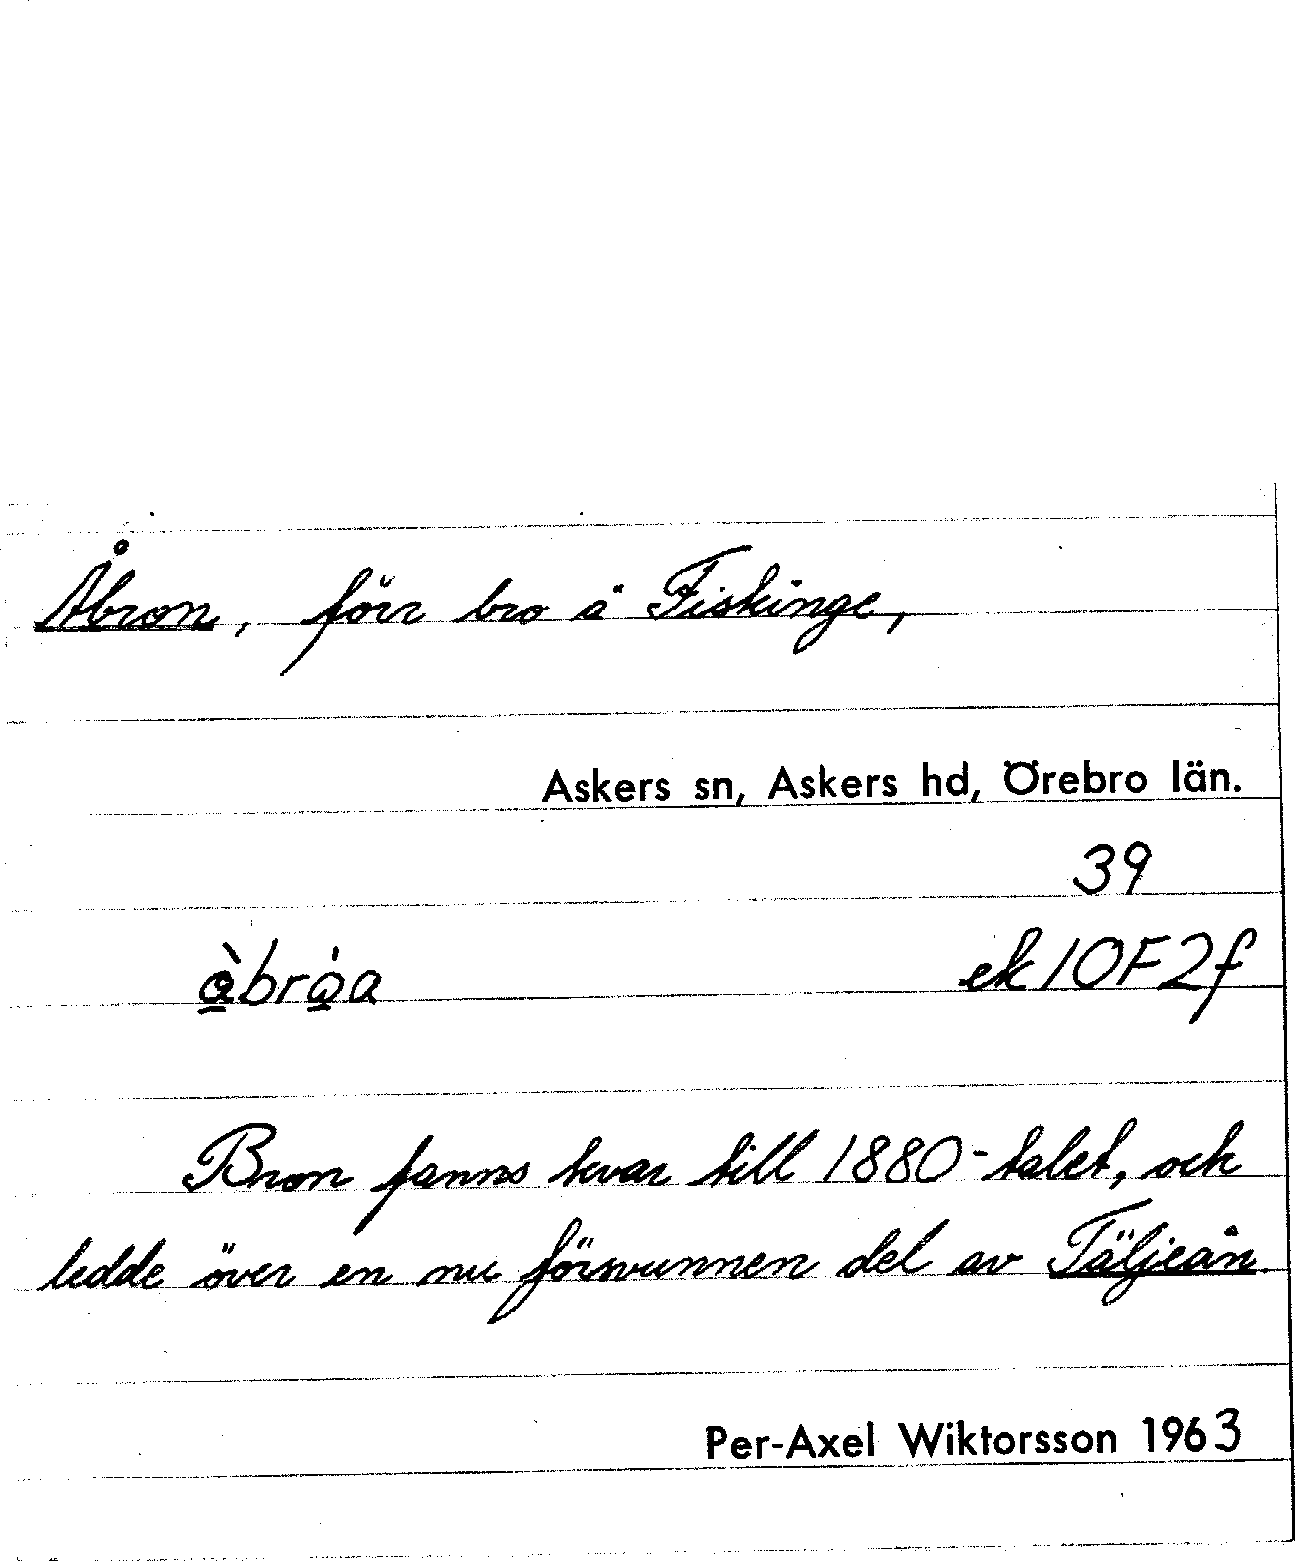 Åbron, förr bro å Fiskinge,
Askers sn, Askers hd, Örebro län.
39
ek 10F2f
Bron fanns kvar till 1880-talet, och
ledde över en nu försvunnen del av Täljeån.
Per-Axel Wiktorsson 1963